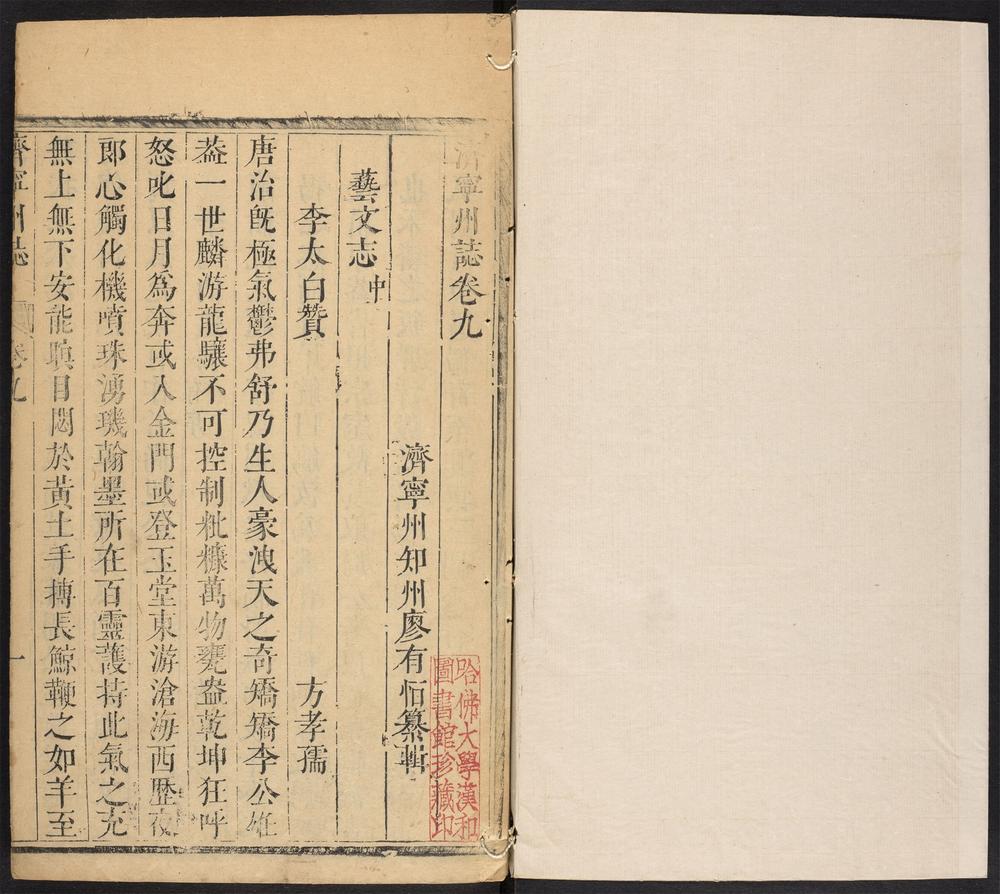 濟寧州誌卷九
濟寧州知州廖有恒纂輯
藝文志中
李太白贊 方孝孺
唐治旣極氣鬱弗舒乃生人豪洩天之奇矯矯李公雄
葢一世麟游龍驤不可控制粃糠萬物甕盎乾坤狂呼
怒叱日月爲奔或入金門或登玉堂東游滄海西歷夜
郎心觸化機噴珠湧璣翰墨所在百靈護持此氣之充
無上無下安能瞑目悶於黃土手摶長鯨鞭之如羊至
濟寧州誌 卷九 一
哈佛大學漢和
圖書館珍藏印